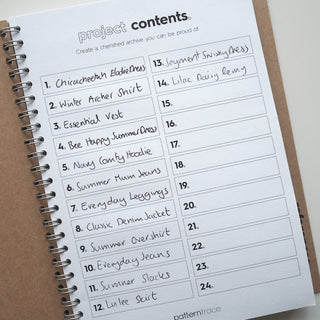 project contents.
Create a cherished archive you can be proud of
1. Chicacheetah Elodie Dress
2. Winter Archer Shirt
3. Essential Vest
4. Bee Happy Summer Dress
5. Navy Comfy Hoodie
6. Summer Mum Jeans
7. Everyday Leggings
8. Classic Denim Jacket
9. Summer Overshirt
10. Everyday Jeans
11. Summer Slacks
12. Lulee Skirt
13. Segment Swishy Dress
14. Lilac Daisy Remy
15.
16.
17.
18.
19.
20.
21.
22.
23.
24.
patterntrace